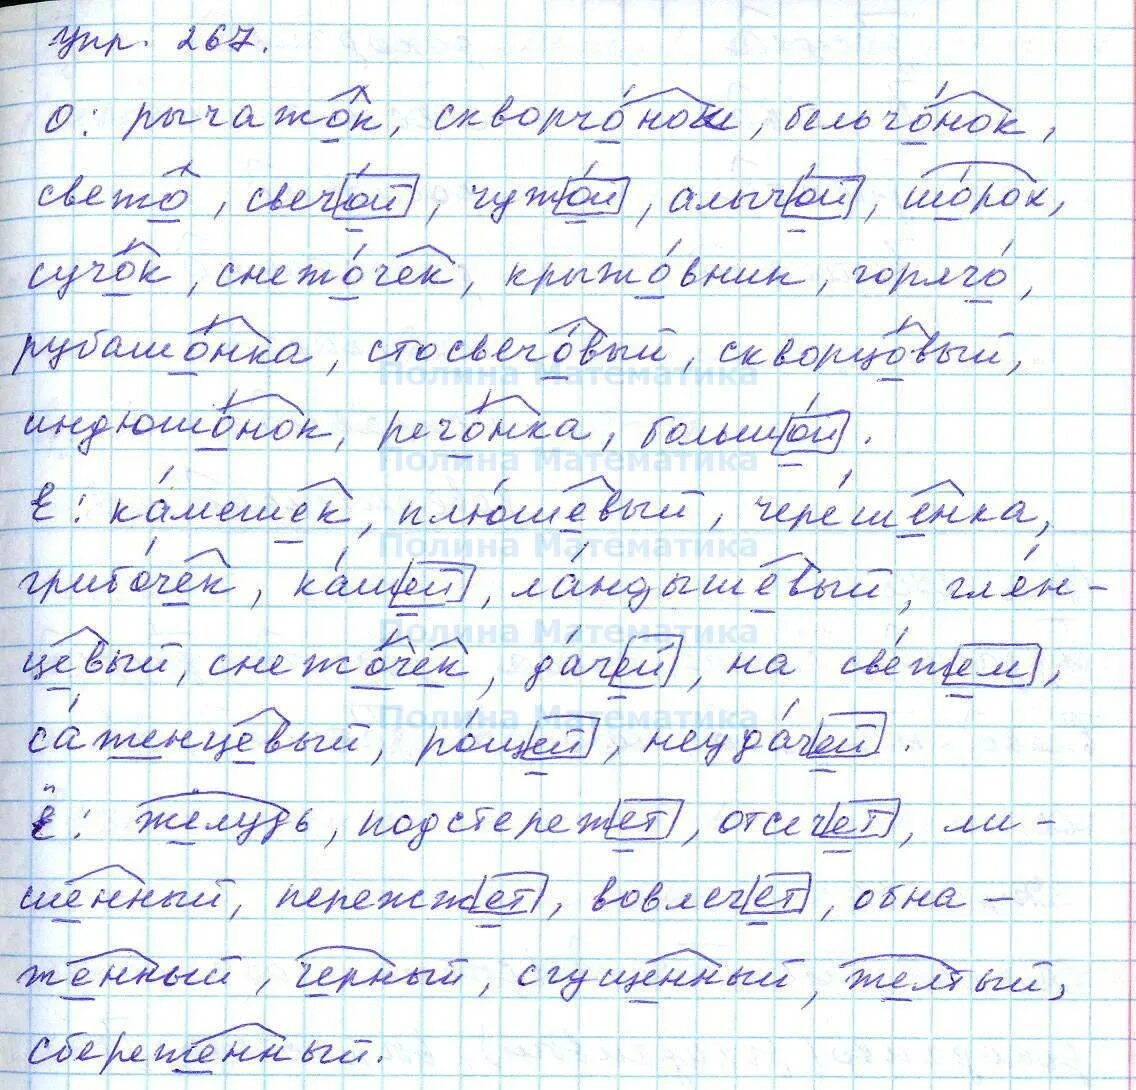 Упр. 267.
О: рычажок, скворчонок, бельчонок,
свежо, свечой, чужой, алычой, шорох,
сучок, снежочек, крыжовник, горячо,
рубашонка, стосвечовый, скворцовый,
Полина Математика
индюшонок, речонка, большой.
Полина Математика
Е: камешек, плюшевый, черешенка,
Полина Математика
грибочек, кашей, ландышевый, глян-
Полина Математика
цевый, снежочек, дачей, на свежем,
Полина Математика
саженцевый, рощей, неудачей.
Ё: желудь, подстережет, отсечет, ли-
шенный, пережжет, вовлечет, обна-
женный, черный, сгущенный, желтый,
сбереженный.